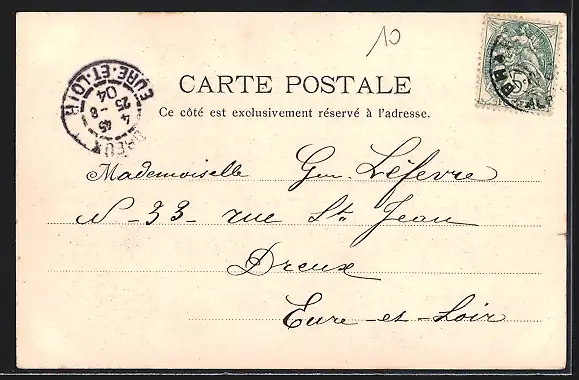 10
CARTE POSTALE
Ce côté est exclusivement réservé à l'adresse.
DREUX
EURE-ET-LOIR
4 45
25 - 8
04
5
Mademoiselle Lefèvre
N - 33 - rue St Jean
Dreux
Eure - et - Loir